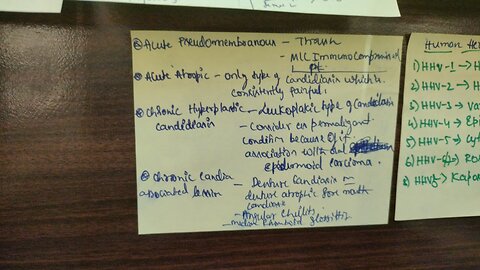 Acute Pseudomembranous - Thrush
- MIC Immunocompromised
Pt.
Acute Atropic - only type of candidiasis which is
consistently painful.
Chronic Hyperplastic - Leukoplakic type of Candidiasis
candidiasis
- Consider as premalignant
condition because of it
association with oral
epidermoid carcinoma.
Chronic candida
associated lesion
- Denture Candidiasis
denture atrophic sore mouth
- Angular Cheilitis
- median rhomboid glossitis
Human He
1) HHV-1 → H
2) HHV-2 → H
3) HHV-3 → Va
4) HHV-4 → Ep
5) HHV-5 → Cyt
6) HHV-6 → Ros
7)
8) HHV8 → Kapos